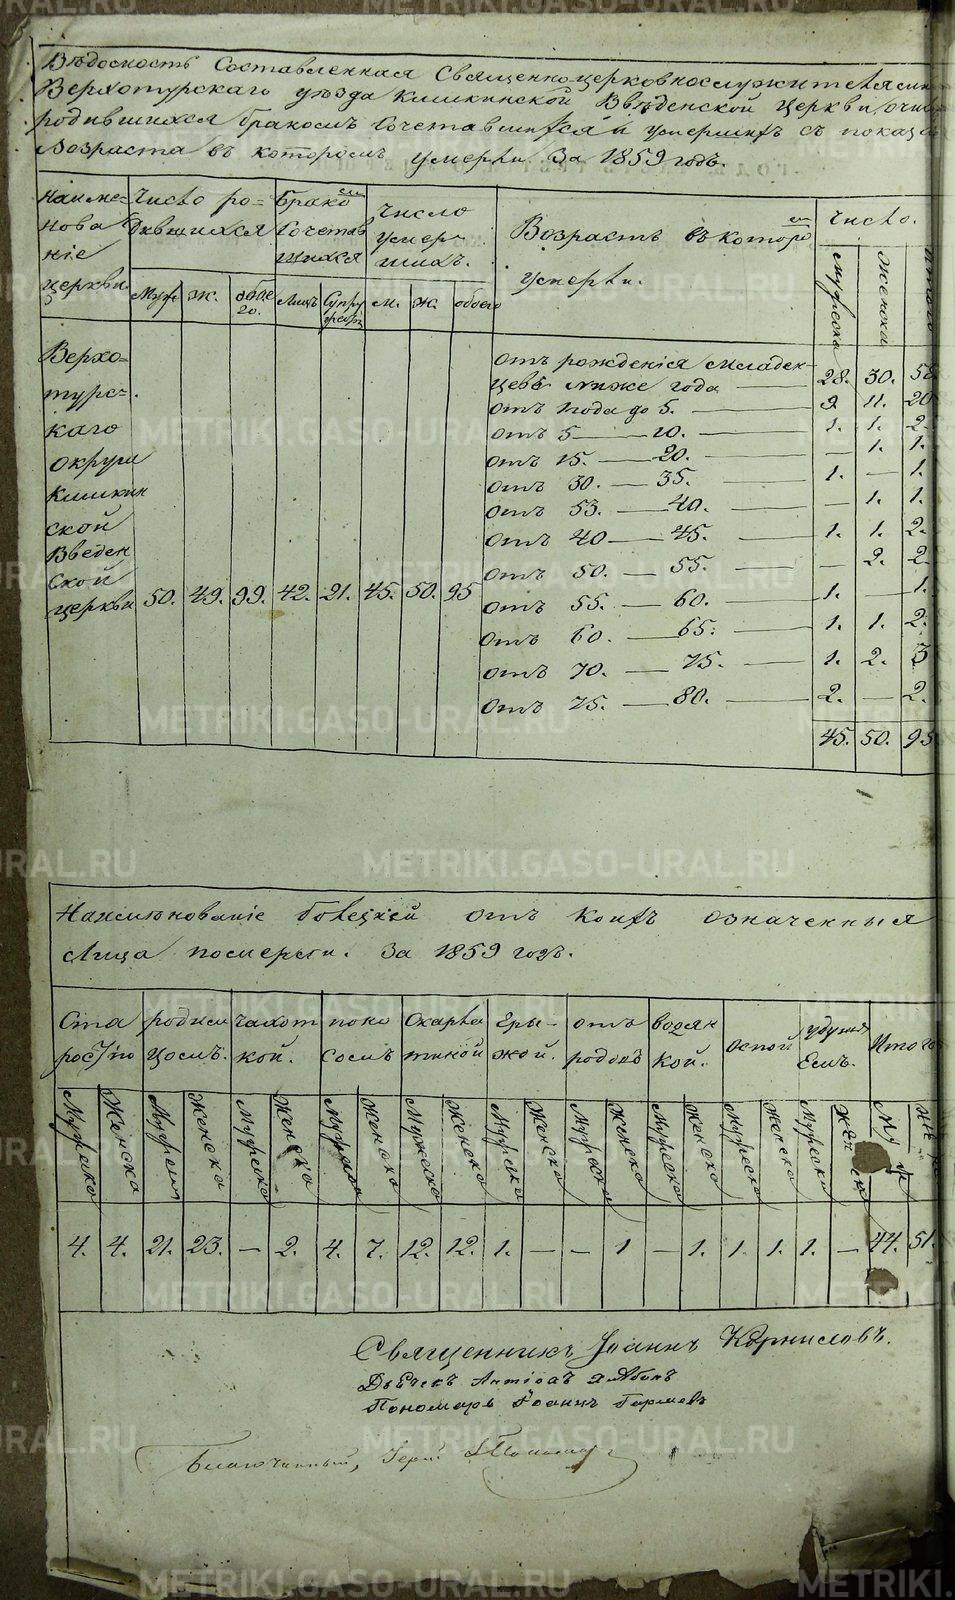 Вѣдомость Составленная Священноцерковнослужителями
Верхотурскаго уѣзда Кишкинской Введенской Церкви, о числѣ
родившихся бракомъ Сочетавшихся и умершихъ съ показа
возраста въ которомъ умерли. За 1859 годъ.
Наиме-
нова
ніе
церкви.
Число ро-
дившихся
Бракомъ
Сочетав
шихся
Число
умер-
шихъ.
Возрастъ въ которомъ
умерли.
Число.
Муж. Ж. обое
го. Лицъ Супру
жест. М. Ж. обоего
мужеска женска итого
Верхо-
турс-
каго
округа
Кишкин
ской
Введен
ской
церкви 50. 49. 99. 42. 21. 45. 50. 95
отъ рожденія младен-
цевъ ниже года 28. 30. 58
отъ 1 года до 5. 9. 11. 20
отъ 5 — 10. 1. 1. 2.
отъ 15. — 20. — 1. 1.
отъ 30. — 35. 1. — 1.
отъ 53. — 40. — 1. 1.
отъ 40 — 45. 1. 1. 2.
отъ 50. — 55. — 2. 2.
отъ 55. — 60. 1. — 1.
отъ 60. — 65. 1. 1. 2.
отъ 70. — 75. 1. 2. 3
отъ 75. — 80. 2. — 2.
45. 50. 95
Наименованіе болезней отъ коихъ означенныя
Лица померли. За 1859 годъ.
Ста
рост/ію
родим
цомъ.
чахот
кой.
поно
сомъ
Скарла
тиной
Гры-
жой.
отъ
родовъ
водян
кой.
Оспой
Удушь
Емъ.
Итого
Мужеско Женска Мужеска Женска Мужеско Женска Мужеска Женска Мужеско Женска Мужеска Женска Мужеска Женска Мужеска Женска Мужеска Женска Мужеска Женска
4. 4. 21. 23. — 2. 4. 7. 12. 12. 1. — — 1 — 1. 1. 1. 1. — 44. 51.
Священникъ Іоаннъ Корниловъ.
Дьячекъ
Пономарь Іоаннъ
Благочинный, Іерей
METRIKI.GASO-URAL.RU